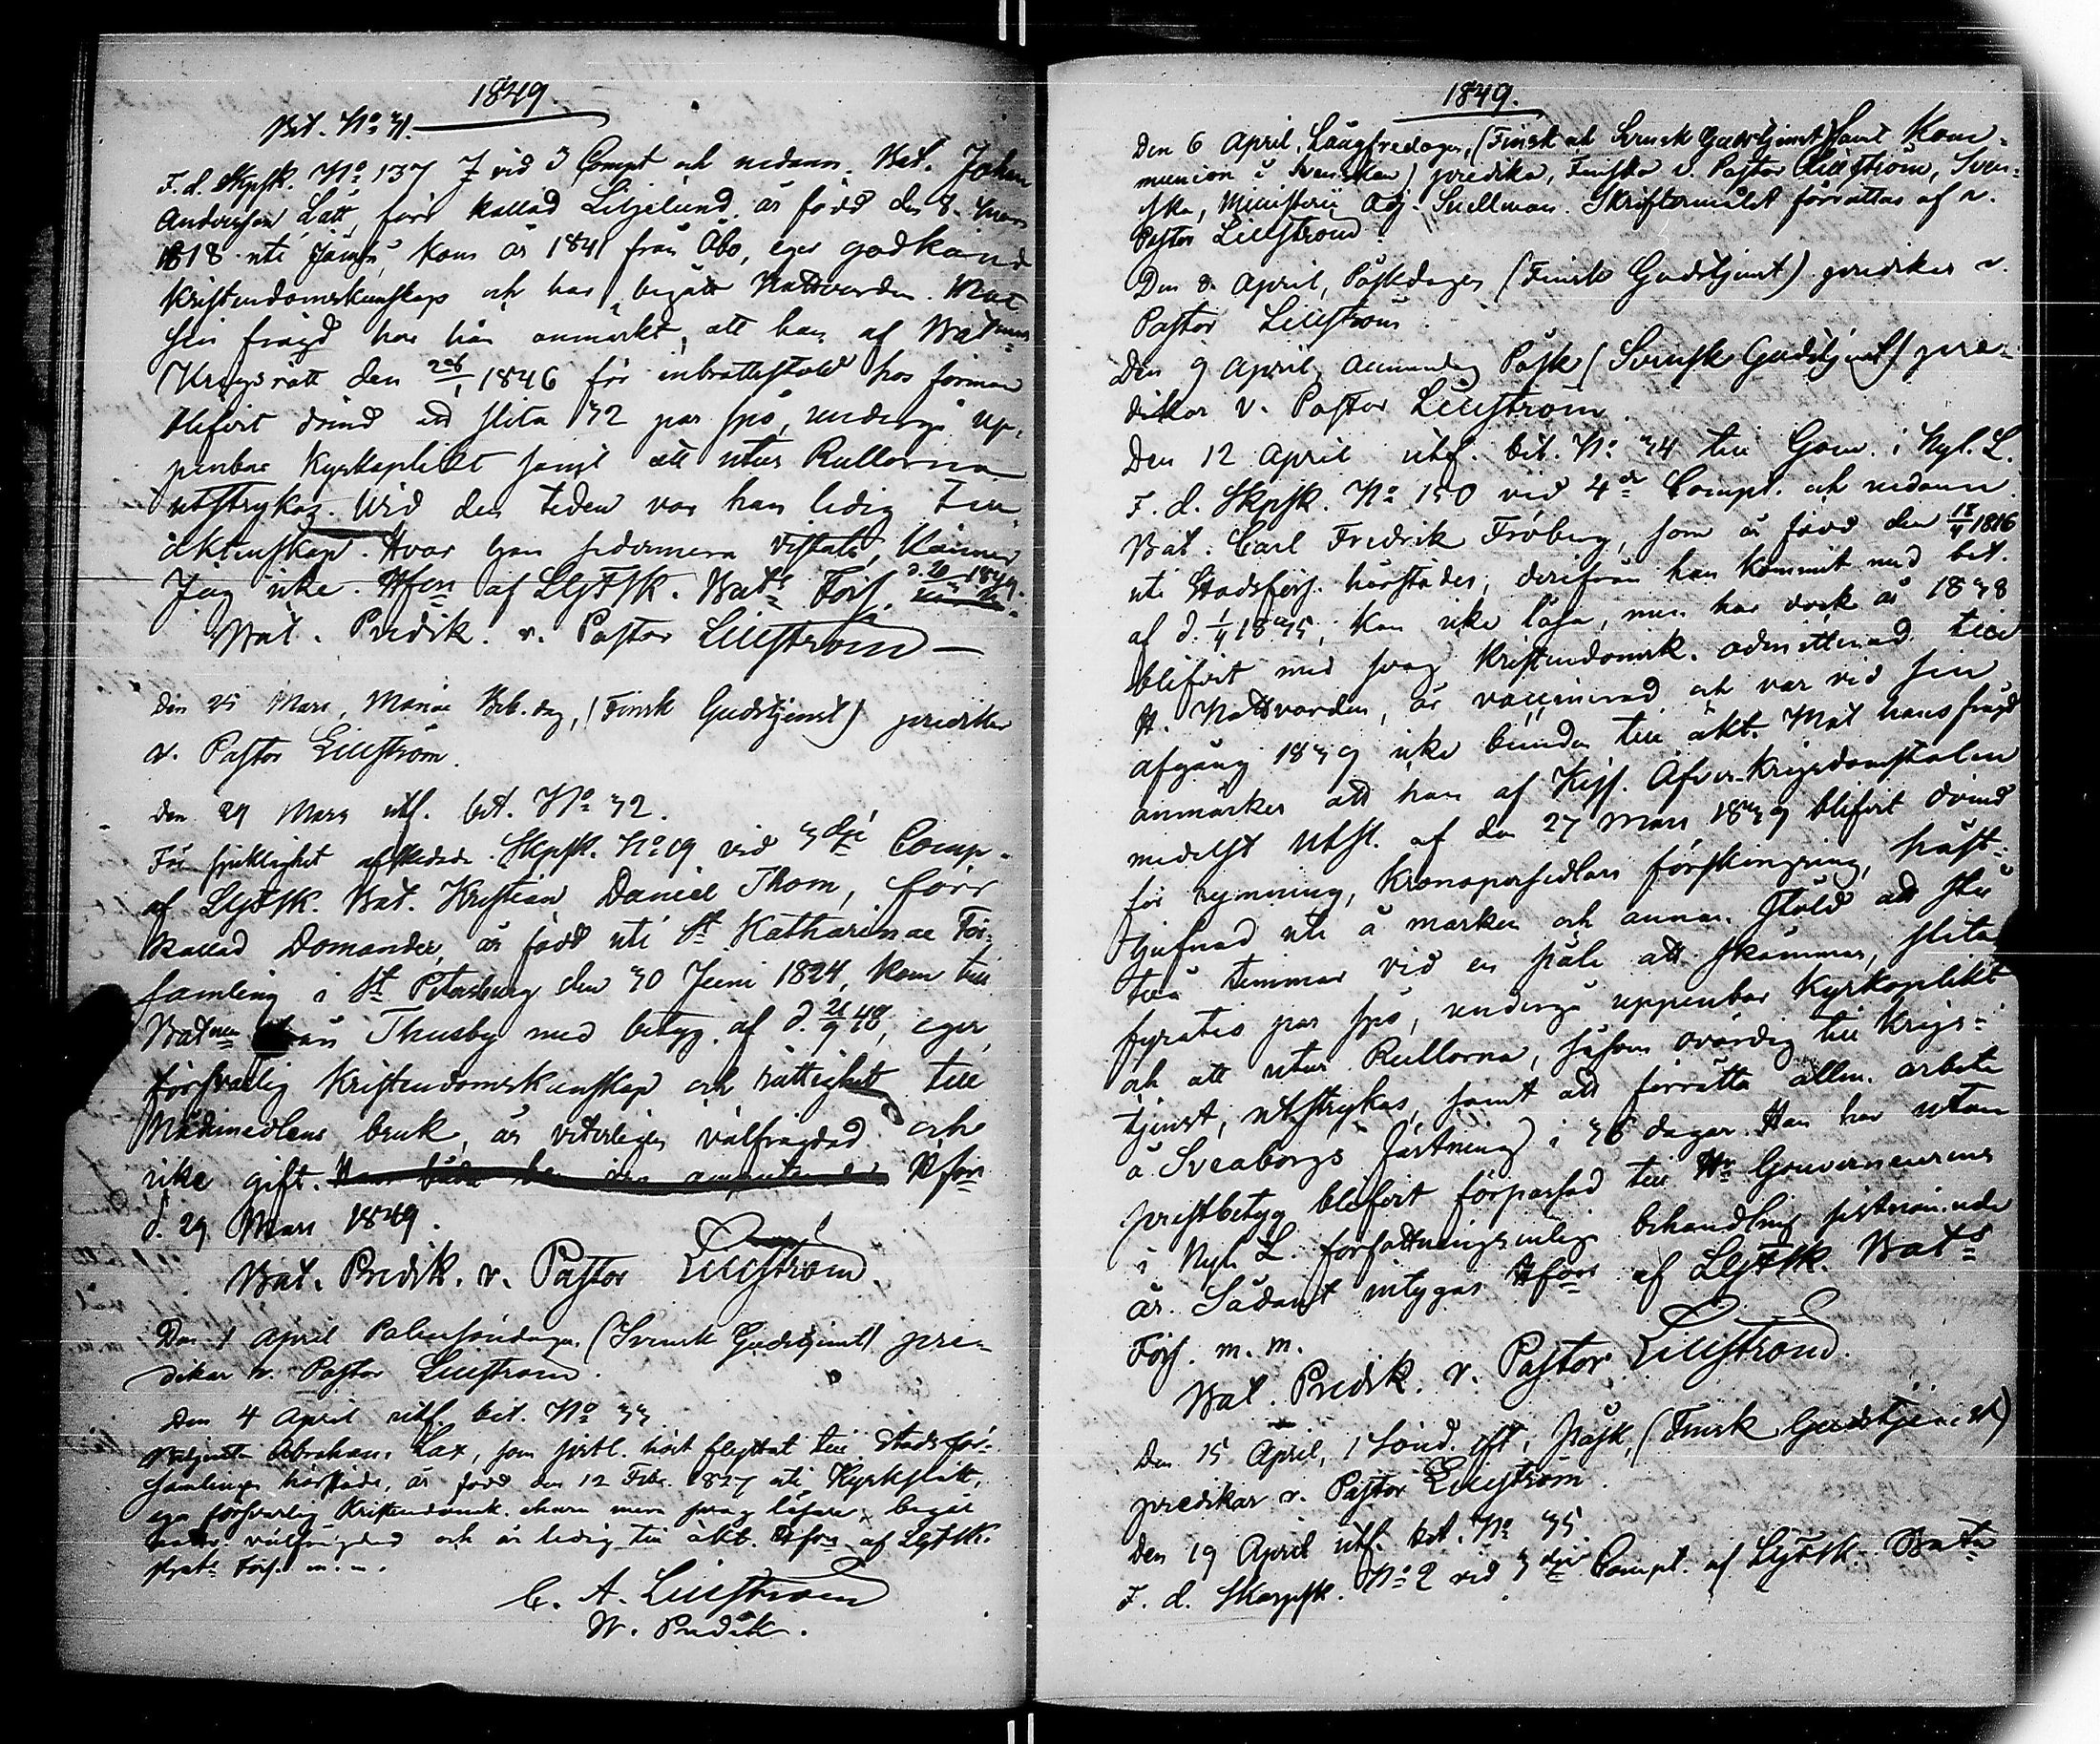 1849.
Bet. No 31.
F. d. Skpsk. No 137 vid 3 Compt och nedann. Bat. Johan
Andersson Lätt, förr kallad Liljelund, är född den 8. Mars
1818 uti Jämsä, kom år 1841 från Åbo, eger godkänd
kristendomskunskap och har begått Nattvarden. Mot
hans frägd har han anmärkt, att han af Batnens
Krigsrätt den 26/1 1846 för inbrottsstöld hos förman
blifvit dömd att slita 32 par spö, undergå up-
penbar Kyrkoplikt samt att utur Rullorna
utstrykas. Vid den tiden var han ledig till
äktenskap. Hvar han sedermera vistats, känner
Jag icke. Hfors af LgFSk. Bats Förs. d. 20 1849.
Bat. Predik. v. Pastor Lillström
Den 25 Mars, Mariæ Beb. dag, (Finsk Gudstjenst) predikar
v. Pastor Lillström.
Den 29 Mars utf. bet. No 32.
För sjuklighet afskedade Skpsk. No 19 vid 3dje Comp.
af LgFSk. Bat. Kristian Daniel Thom, förr
kallad Domander, är född uti St Katharinae För-
samling i St Petersburg den 30 Juni 1824, kom till
Batnen från Thusby med betyg af d. 21/9 48, eger
försvarlig Kristendomskunskap och rättighet till
Nådemedlens bruk, är veterligen välfrägdad och
icke gift. Hfors
d. 29 Mars 1849.
Bat. Predik. v. Pastor Lillström.
Den 1 April Palmsöndagen (Svensk Gudstjenst) pre-
dikar v. Pastor Lillström.
Den 4 April utf. bet. No 33
Abraham Lax, som flyttat till Stadsför-
samlingen härstädes, är född den 12 Febr. 1827 uti Kyrkslätt,
eger försvarlig Kristendomsk. men svag läsare, begår
nattv. välfrägdad och är ledig till äkt. Hfors af LgFSk.
Bats Förs. m. m.
C. A. Lillström
B. Predik.
1849.
Den 6 April, Långfredagen, (Finsk och Svensk Gudstjenst samt Kom-
munion i Svenskan) predika, Finska v. Pastor Lillström, Sven-
ska, Ministerii Adj. Snellman. Skriftermålet förrättas af v.
Pastor Lillström.
Den 8 April, Påskdagen (Finsk Gudstjenst) predikar v.
Pastor Lillström.
Den 9 April, Annandag Påsk (Svensk Gudstjenst) pre-
dikar v. Pastor Lillström.
Den 12 April utf. bet. No 34 till Gouv. i Nyl. L.
F. d. Skpsk. No 150 vid 4de Compt. och nedann.
Bat. Carl Fredrik Fröberg, som är född den 18/4 1816
uti Stadsförs. härstädes, derifrån han kommit med bet.
af d. 1/4 1835, kan icke läsa, men har dock år 1838
blifvit med svag Kristendomsk. admitterad till
H. Nattvarden, är vaccinerad och var vid sin
afgång 1839 icke bunden till äkt. Mot hans frägd
anmärkes att han af Kejs. Öfver-Krigsdomstolen
medelst Utsl. af den 27 Mars 1839 blifvit dömd
för rymning, Kronopersedlars förskingring, häst-
tjufnad uti å marken och annan stöld att stå
två timmar vid en påle att skämmas, slita
fyratio par spö, undergå uppenbar Kyrkoplikt
och att utur Rullorna, såsom ovärdig till Krigs-
tjenst, utstrykas, samt att förrätta allm. arbete
å Sveaborgs fästning i 36 dagar. Han har utan
prestbetyg blifvit förpassad till Hr Gouverneurens
i Nyl. L. författningsenliga behandling
är. Sådant intygar Hfors af LgFSk. Bats
Förs. m. m.
Bat. Predik. v. Pastor Lillström.
Den 15 April, 1 Sönd. eft. Påsk, (Finsk Gudstjenst)
predikar v. Pastor Lillström.
Den 19 April utf. bet. No 35.
F. d. Skarpsk. No 2 vid 3dje Compt. af LgFSk. Bats